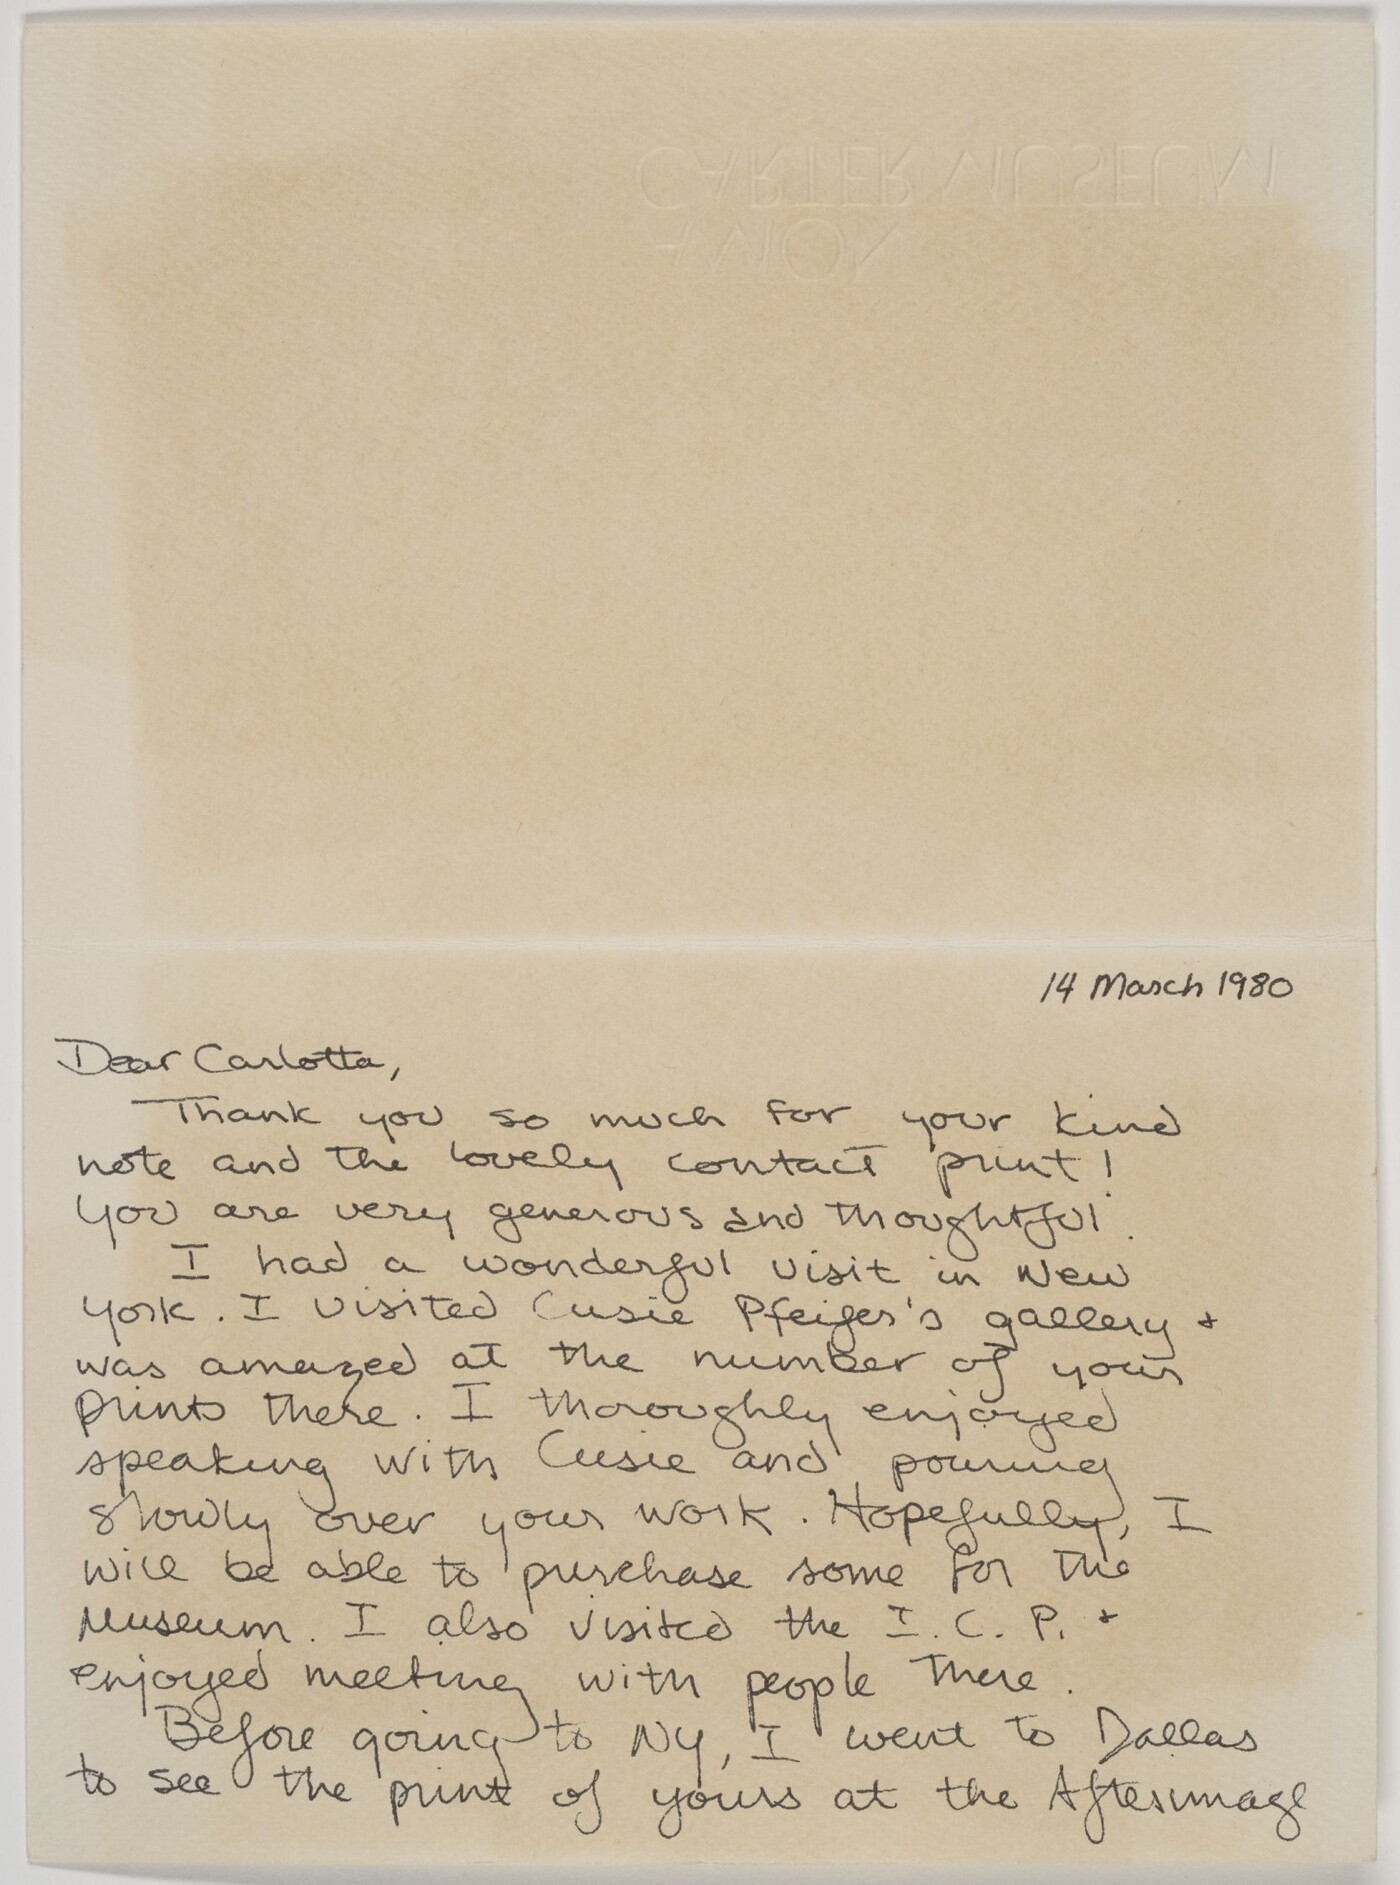 AMON
CARTER MUSEUM
14 March 1980
Dear Carlotta,
Thank you so much for your kind
note and the lovely contact print!
You are very generous and thoughtful.
I had a wonderful visit in New
York. I visited Cusie Pfeifer's gallery +
was amazed at the number of your
prints there. I thoroughly enjoyed
speaking with Cusie and pouring
slowly over your work. Hopefully, I
will be able to purchase some for the
Museum. I also visited the I.C.P. +
enjoyed meeting with people there.
Before going to NY, I went to Dallas
to see the print of yours at the Afterimage